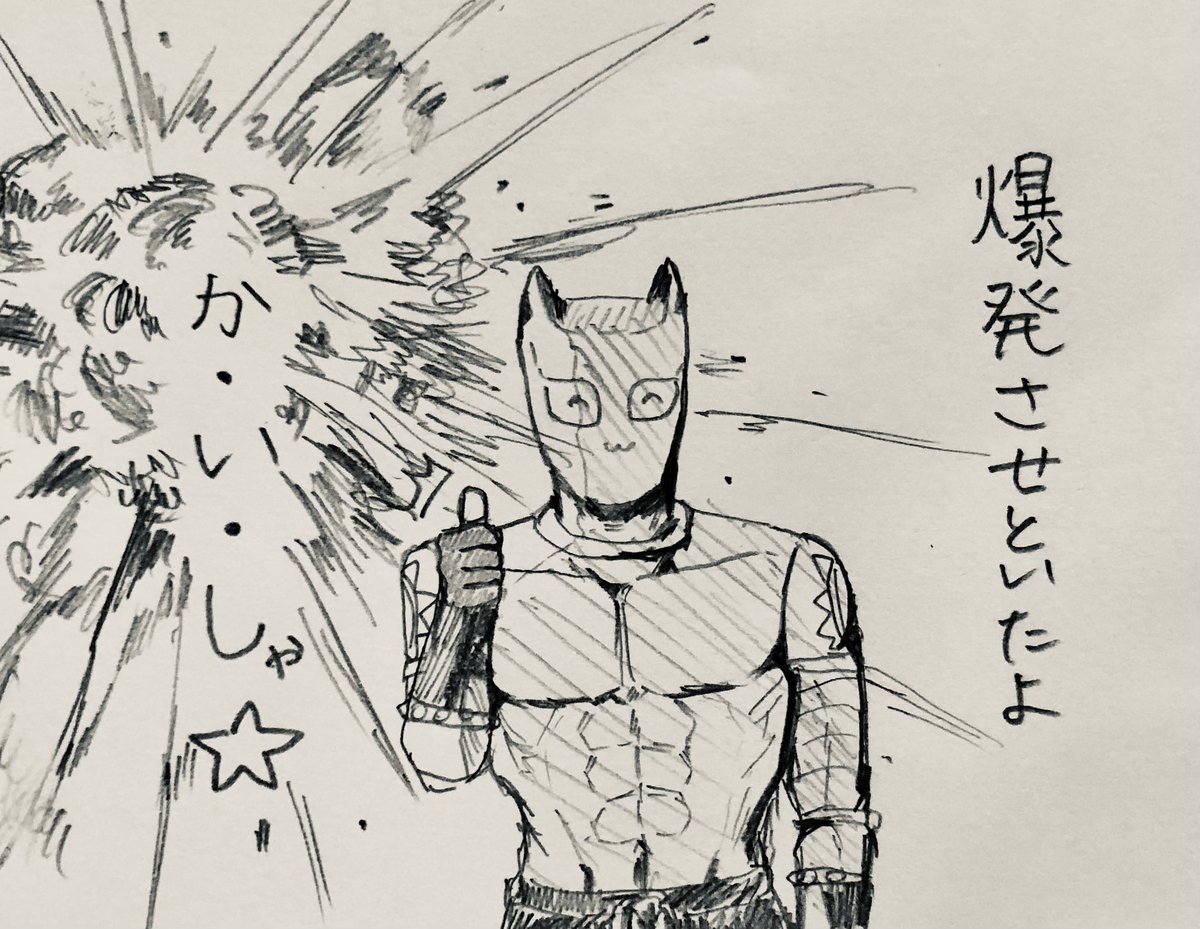 爆発させといたよ
か・い・しゃ☆